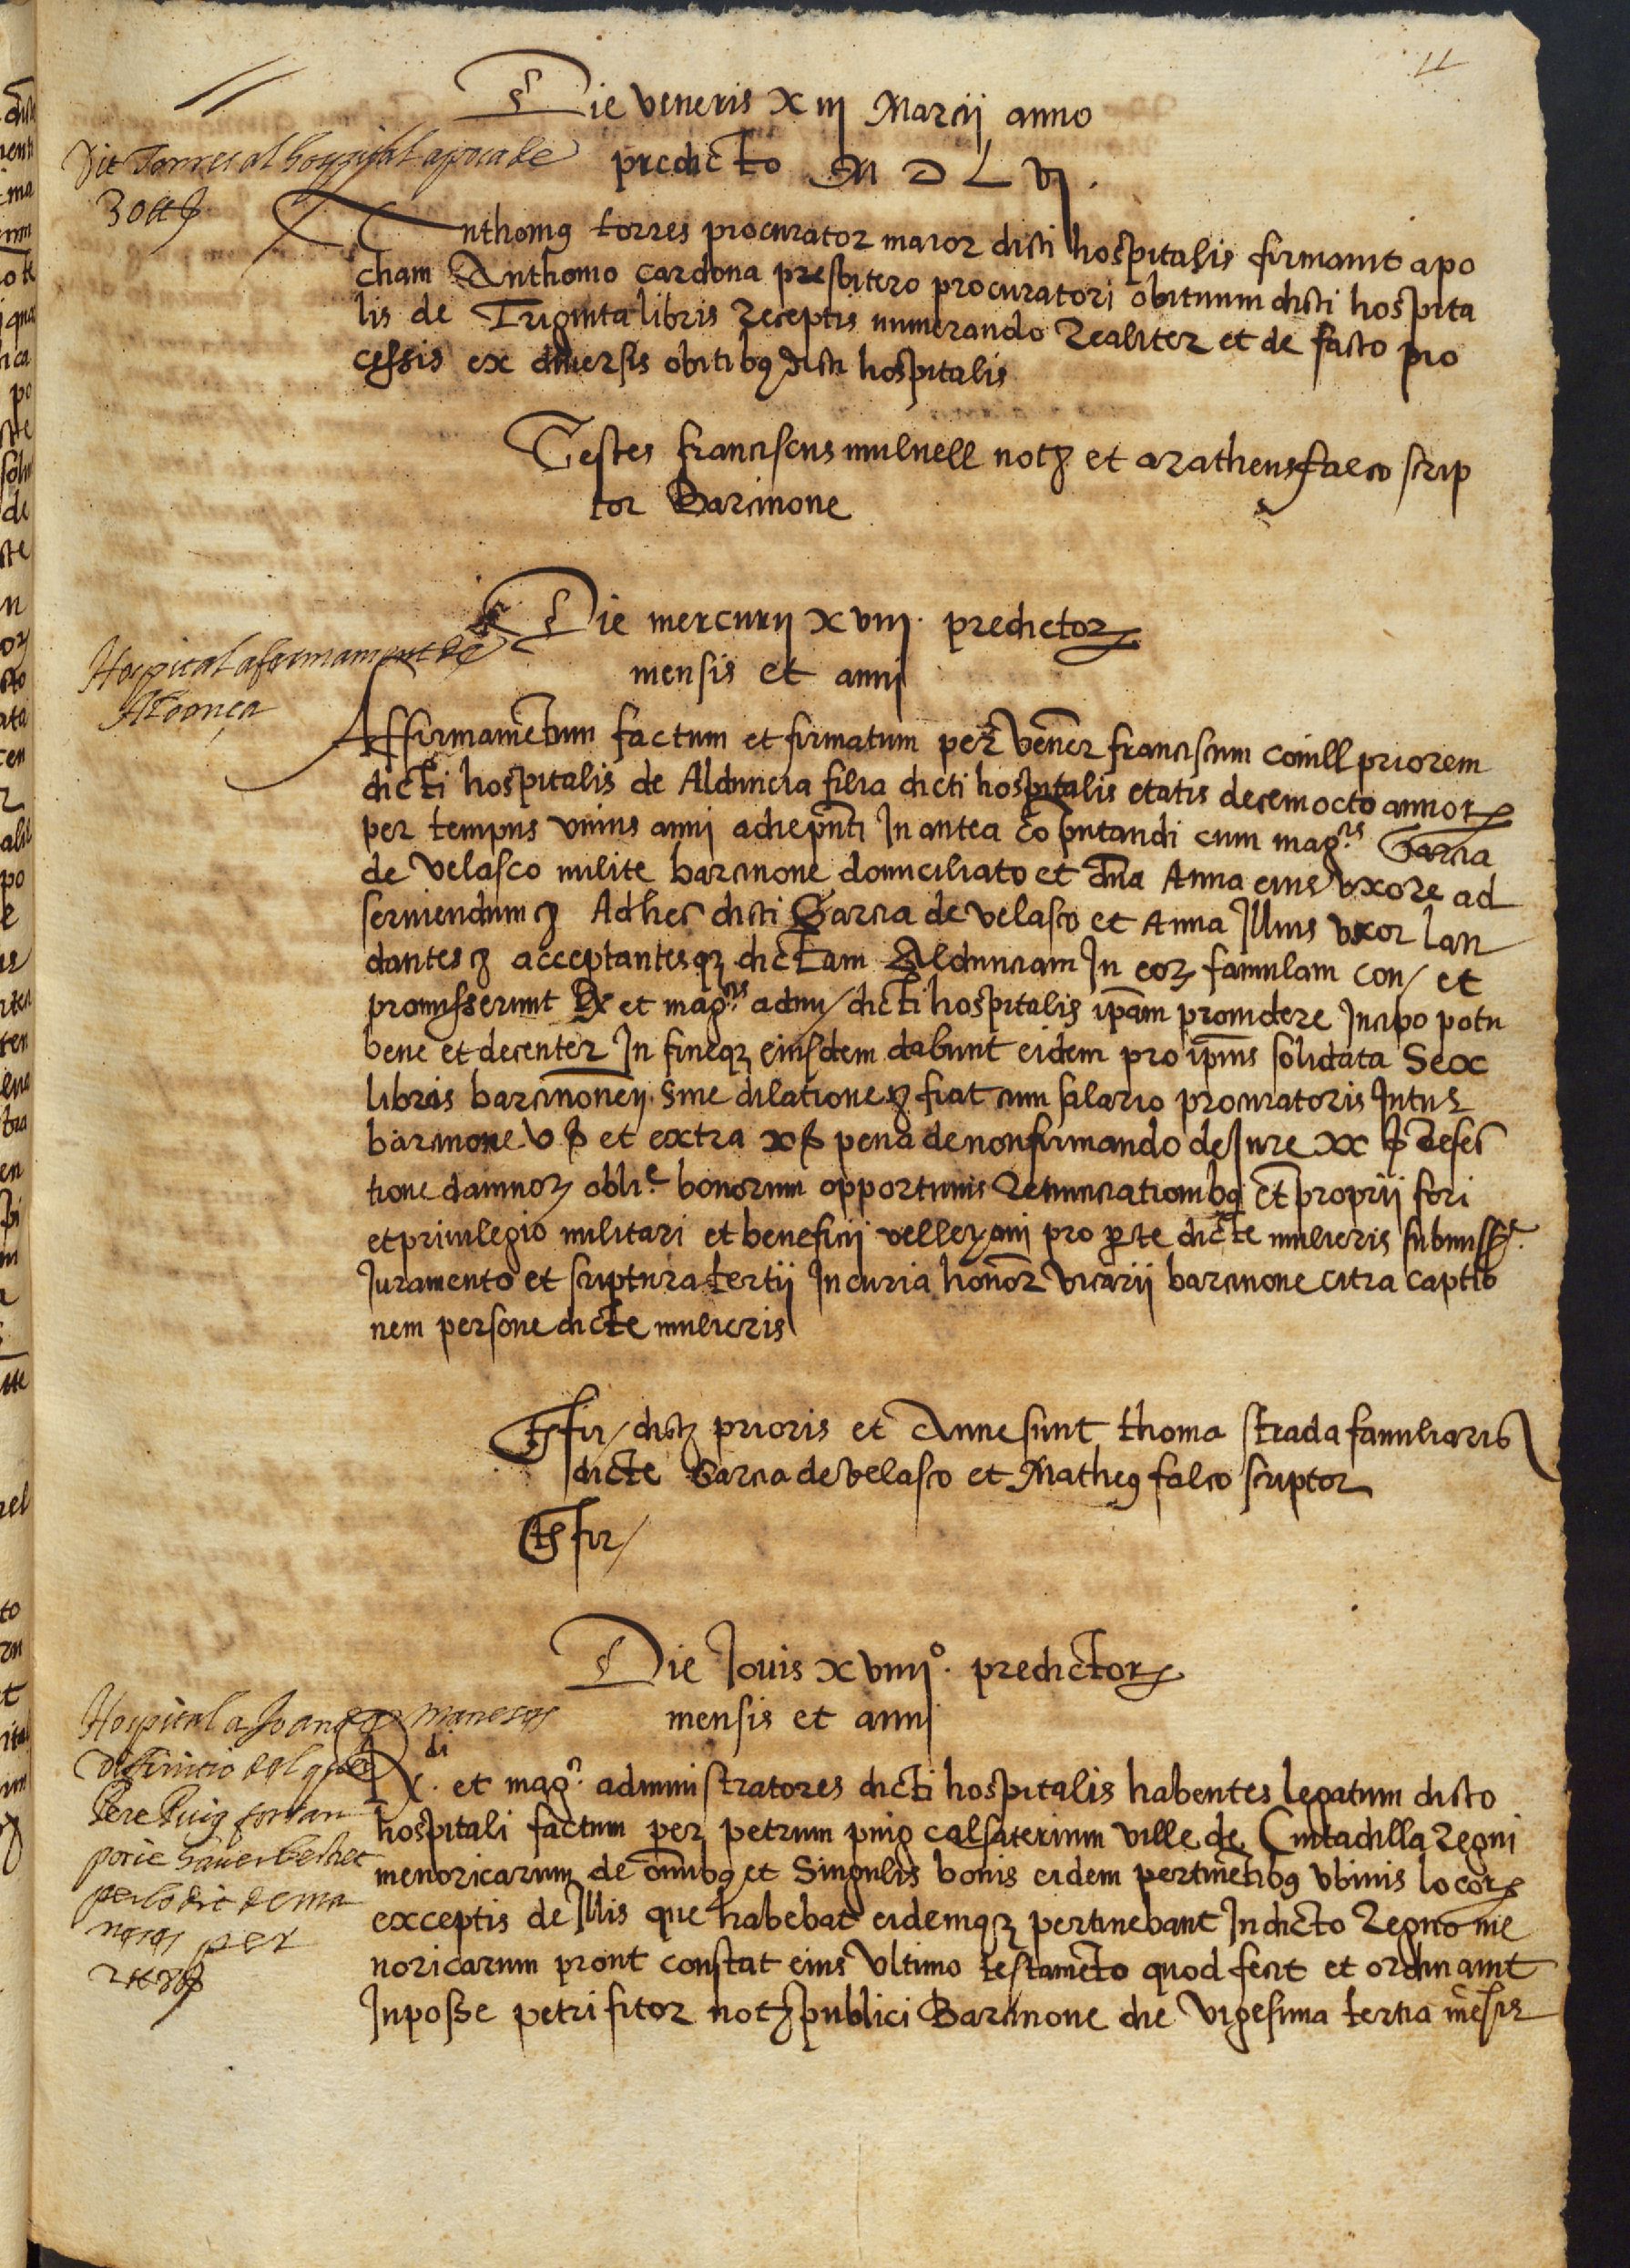 11
Die veneris xiij Marcij anno
predicto M D L vj.
Dit Torres al hospital apoca de
30 ℔ ẞ
Anthoniꝯ torres procurator maior dicti hospitalis firmauit apo
cham Anthonio cardona presbitero procuratori obituum dicti hospita
lis de Triginta libris receptis numerando realiter et de facto pro
cessis ex diuersis obitibꝯ dicti hospitalis
Testes franciscus mulnell notꝫ et matheus falco scrip
tor Barcinone
Die mercurij xviij. predictoꝝ
mensis et anni
Hospital afermament de
Aldonça
Affirmametum factum et firmatum per Vener franciscum coull priorem
dicti hospitalis de Alduncia filia dicti hospitalis etatis decemocto annoꝝ
per tempus vnius anni adhepnti In antea coputandi cum mag.cis Garcia
de velasco milite barcinone domiciliato et dna Anna eius vxore ad
seruiendum ꝫ Adhec dicti Garcia de velasco et Anna Illius vxor lau
dantes ꝫ acceptantesqꝫ dictam Aldunciam In eoꝝ famulam con/ et
promisserunt Rx et mag.cis admi/ dicti hospitalis ipam prouidere Incipo potu
bene et decenter In fineqꝫ eiusdem dabunt eidem pro ipius solidata Sex
libras barcinonen. Sine dilatione ꝫ fiat cum salario procuratoris Intus
barcinone v ẞ et extra x ẞ pena de non firmando de Iure xx ẞ Refec
tione damnoꝝ obli.e bonorum opportunis Renunciationibꝯ Et proprii fori
et priuilegio militari et beneficij velleyani pro ꝑte dicte mulieris submisse.
Iuramento et scriptura tertij In curia honor vicarij barcinone citra captio
nem persone dicte mulieris
Ts fir/ dictꝫ prioris et Anne sunt thoma strada familiaris
dicte Garcia de velasco et Matheꝯ falco scriptor
Ts fir/
Die Jouis xviiij°. predictoꝝ
mensis et anni
Hospital a Joan manesas
difinicio del que
Pere Puig
poríe hauer
per lo dit de ma
nesas per
2 ℔ 8 ẞ
di
Rx. et mag.ci administratores dicti hospitalis habentes legatum dicto
hospitali factum per petrum puig calsaterium ville de Ciutadilla Regni
menoricarum de omibꝯ et Singulis bonis eidem pertinetibꝯ vbiuis locoꝝ
exceptis de Illis que habebat eidemqꝫ pertinebant In dicto Regno me
noricarum prout constat eius vltimo testameto quod fecit et ordinauit
In posse petri fitor notꝫ publici Barcinone die vigesima tertia mesis